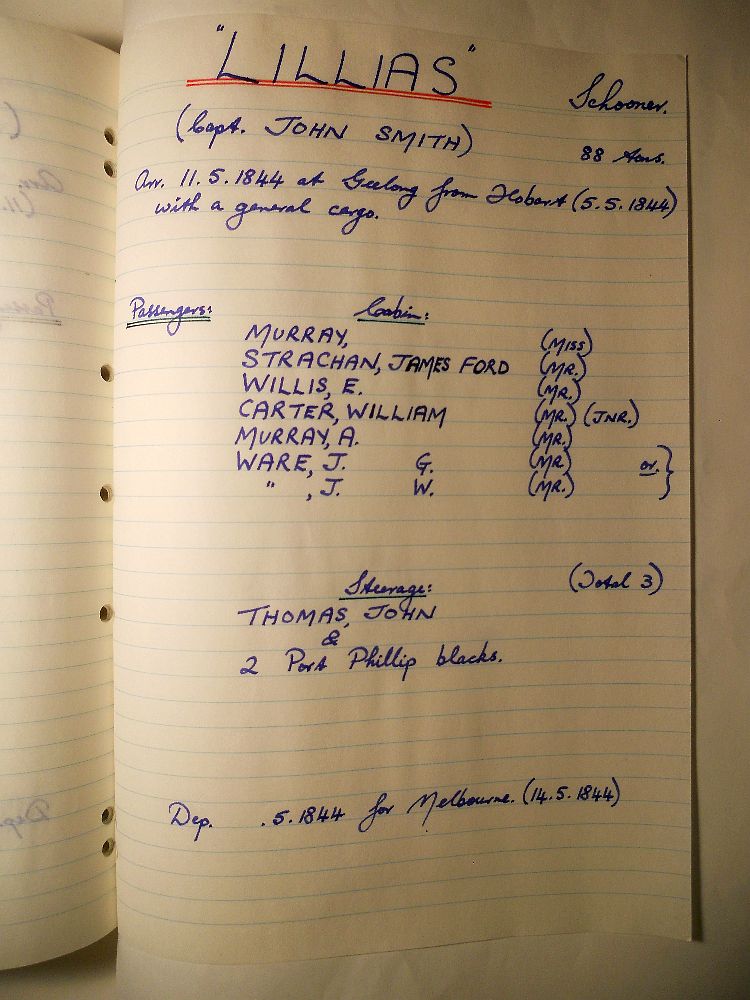 "LILLIAS"
Schooner.
(Capt. JOHN SMITH)
88 tons.
Arr. 11.5.1844 at Geelong from Hobart (5.5.1844)
with a general cargo.
Passengers: Cabin:
MURRAY, (MISS)
STRACHAN, JAMES FORD (MR.)
WILLIS, E. (MR.)
CARTER, WILLIAM (MR.) (JNR.)
MURRAY, A. (MR.)
WARE, J. G. (MR.) or. }
" , J. W. (MR.)
Steerage: (Total 3)
THOMAS, JOHN
&
2 Port Phillip blacks.
Dep. .5.1844 for Melbourne. (14.5.1844)